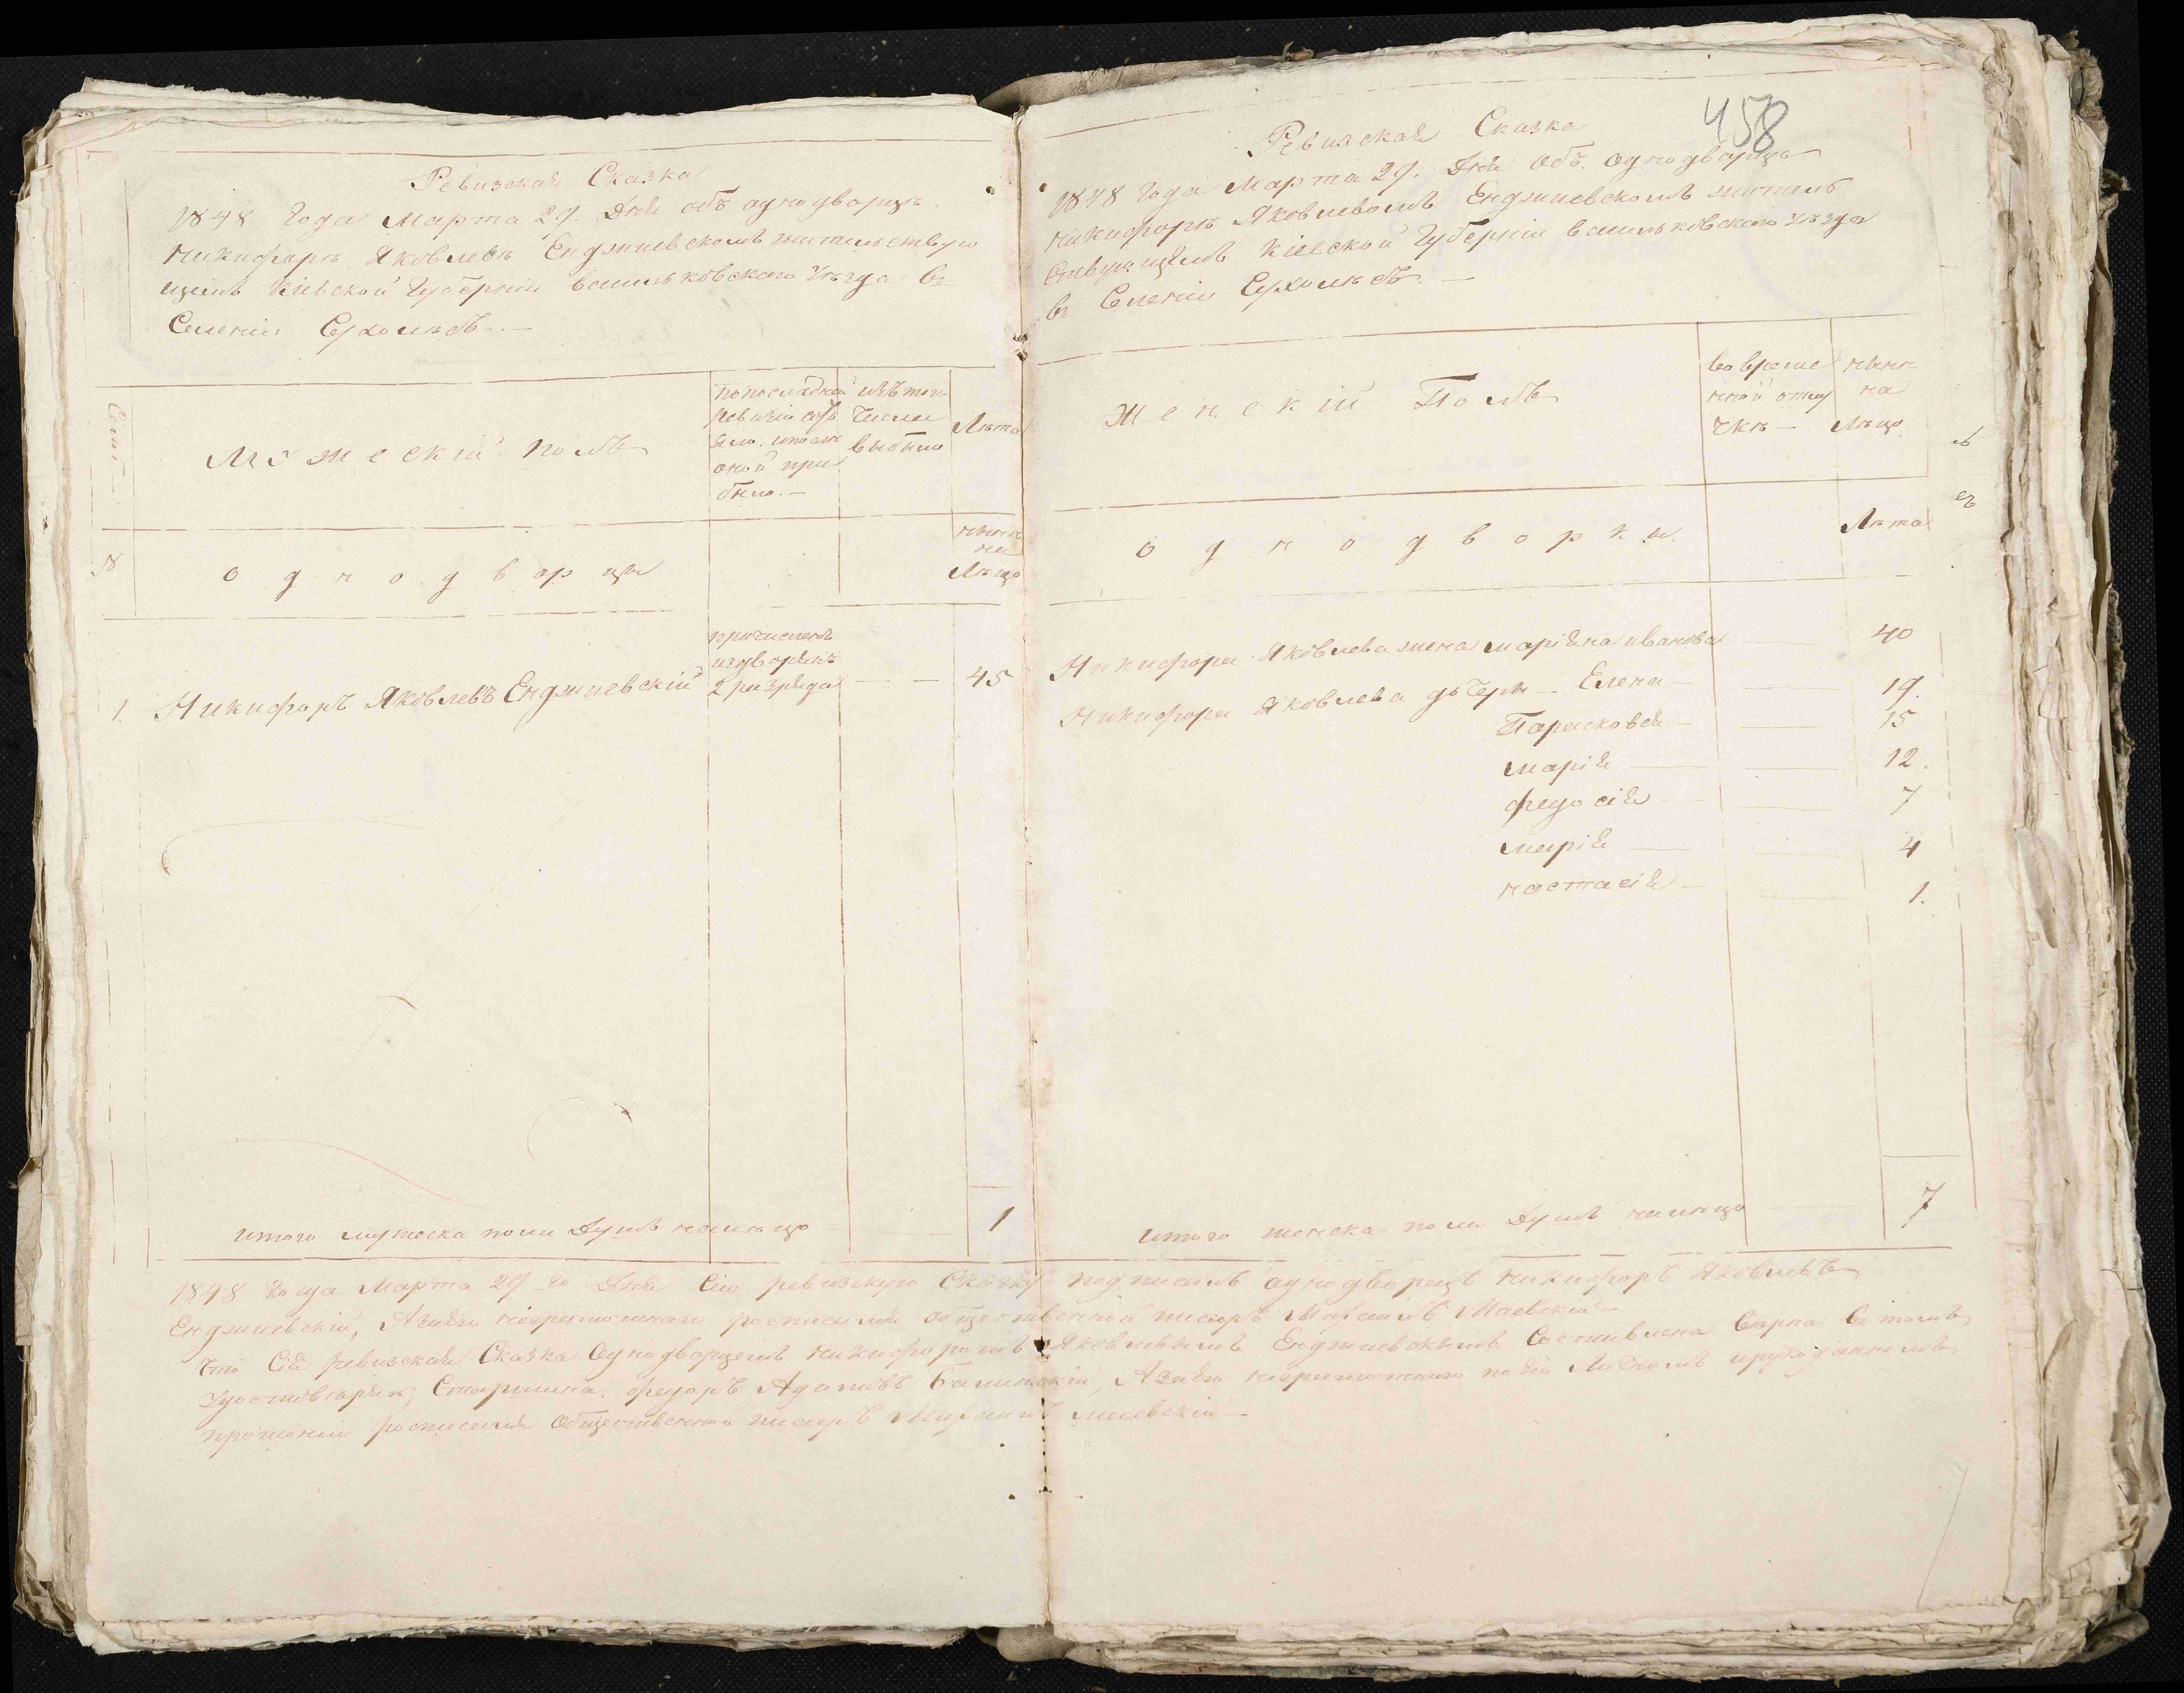 Ревизская Сказка
1848 Года Марта 29. Дня объ однодворцѣ
Никифорѣ Яковлевѣ Енджиевскомъ жительствую
щемъ Кіевской Губерніи Васильковского Уѣзда въ
Селеніи
Семей
Мужескій полъ
по последней
ревизіи состо
яло. и после
оной при
было.
изъ того
числа
выбыло
Лѣта
№
однодворцы
нынѣ
на
Лѣцо
1. Никифоръ Яковлевъ Енджиевскій
причисленъ
из дворянъ
2 разряда
45
итого мужеска пола Душъ налицо 1
458
Ревизская Сказка
1848 Года Марта 29. Дня Объ однодворцѣ
Никифорѣ Яковлевомъ Енджиевскомъ житель
ствующемъ Кіевской Губерніи Васильковского Уѣзда
въ Селеніи
Женскій Полъ
во време
нной отлу
чкѣ
нынѣ
на
Лѣцо
однодворки
Лѣта
Никифора Яковлева жена Маріяна Иванова 40
Никифора Яковлева дочери Елена 19.
Парасковея 15
Марія 12.
Федосія 7
Марія 4
Настасія 1.
итого женска пола Душъ налицо 7
1848 Года Марта 29 го Дня Сію ревизскую Сказку подписалъ однодворецъ Никифоръ Яковлевъ
Енджиевскій, А за него неграмотнаго росписался общественной писарь Маевскій
Что Сія ревизская Сказка Однодворцемъ Никифоромъ Яковлевымъ Енджиевскимъ Составлена Верна в томъ
Удостоверяю, Старшина Федоръ а за его неграмотного по его
прошению росписался Общественной писарь Маевскій